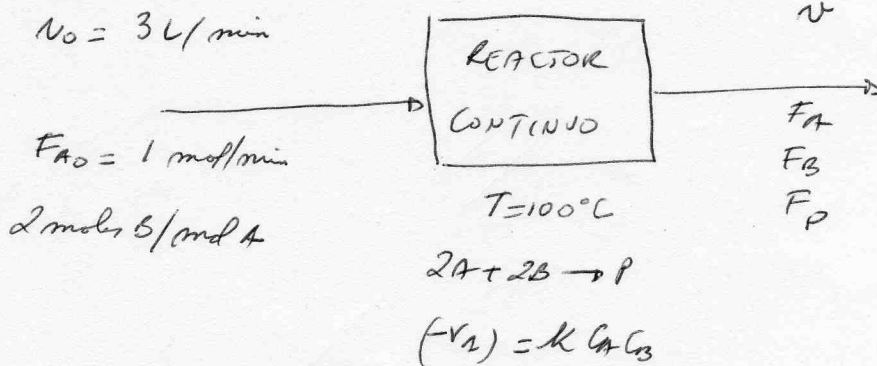 v0 = 3 L/min
FA0 = 1 mol/min
2 moles B/mol A
REACTOR
CONTINUO
T=100°C
2A + 2B → P
(-r1) = k CA CB
v
FA
FB
FP